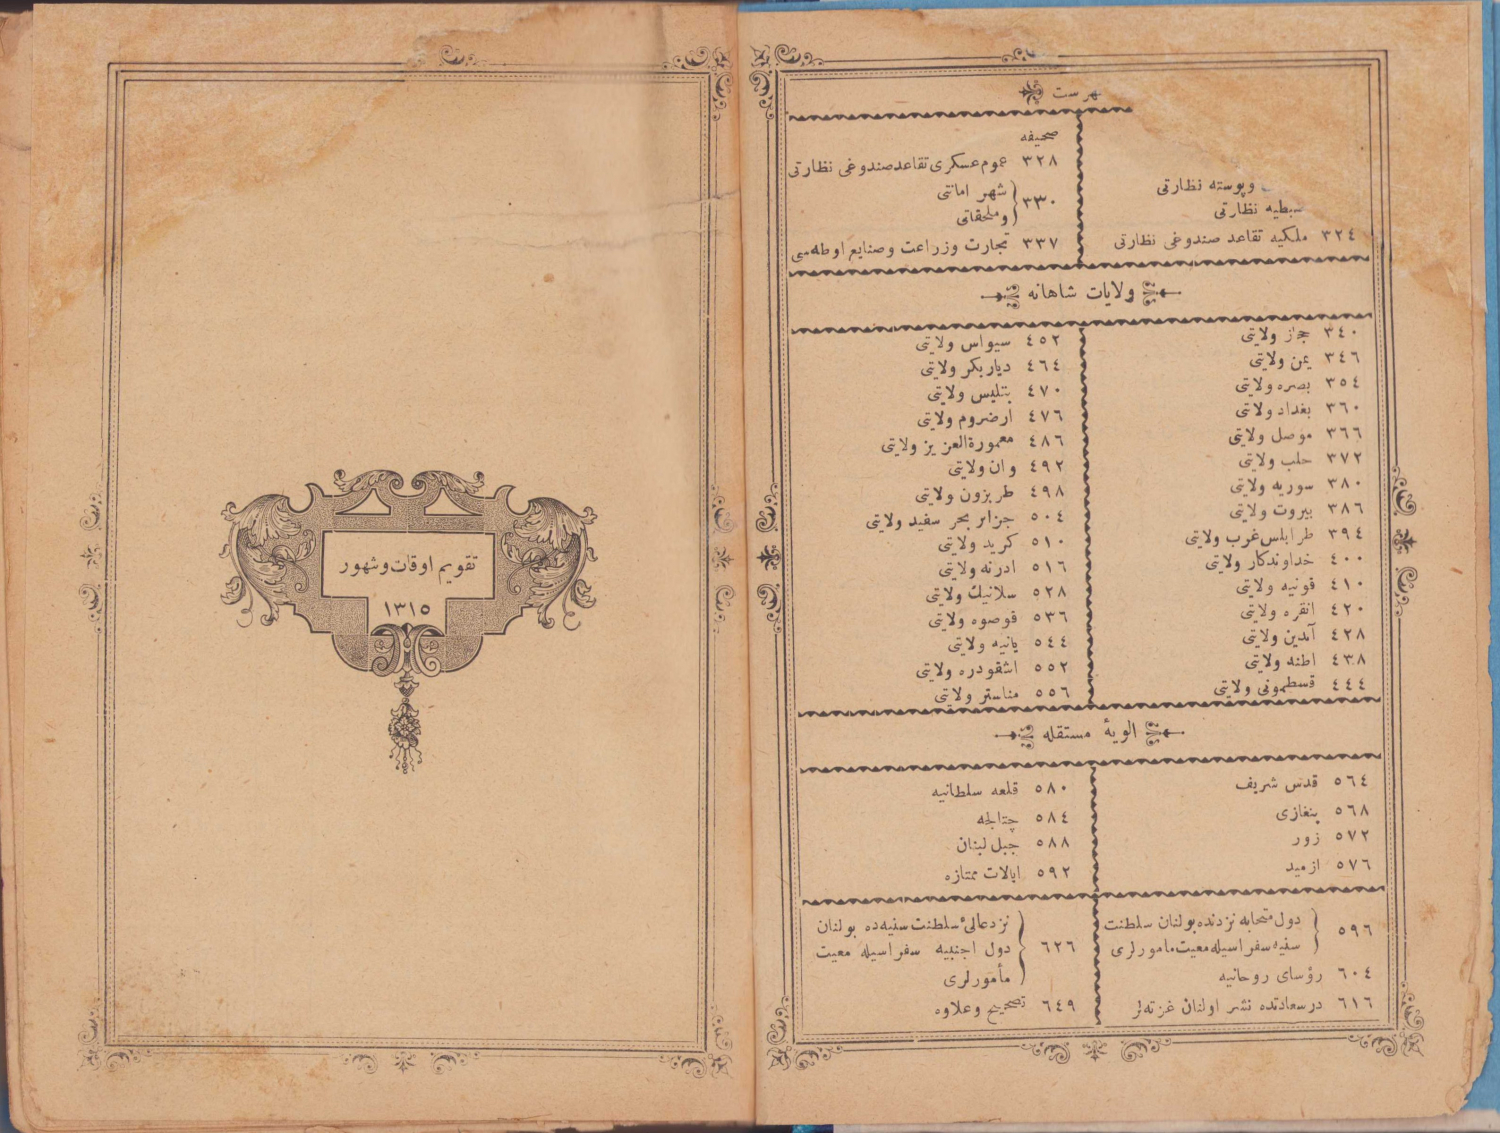 فهرست
وپوسته نظارتی
نظارتی
٣٢٤ ملكیه تقاعد صندوغی نظارتی
صحیفه
٣٢٨ عموم عسكری تقاعد صندوغی نظارتی
٣٣٠ شهر امانتی
وملحقاتی
٣٣٧ تجارت وزراعت وصنایع اوطه‌سی
ولایات شاهانه
٣٤٠ حجاز ولایتی
٣٤٦ یمن ولایتی
٣٥٤ بصره ولایتی
٣٦٠ بغداد ولایتی
٣٦٦ موصل ولایتی
٣٧٢ حلب ولایتی
٣٨٠ سوریه ولایتی
٣٨٦ بیروت ولایتی
٣٩٤ طرابلس غرب ولایتی
٤٠٠ خداوندكار ولایتی
٤١٠ قونیه ولایتی
٤٢٠ انقره ولایتی
٤٢٨ آیدین ولایتی
٤٣٨ اطنه ولایتی
٤٤٤ قسطمونی ولایتی
٤٥٢ سیواس ولایتی
٤٦٤ دیاربكر ولایتی
٤٧٠ بتلیس ولایتی
٤٧٦ ارضروم ولایتی
٤٨٦ معمورةالعزیز ولایتی
٤٩٢ وان ولایتی
٤٩٨ طربزون ولایتی
٥٠٤ جزائر بحر سفید ولایتی
٥١٠ كرید ولایتی
٥١٦ ادرنه ولایتی
٥٢٨ سلانیك ولایتی
٥٣٦ قوصوه ولایتی
٥٤٤ یانیه ولایتی
٥٥٢ اشقودره ولایتی
٥٥٦ مناستر ولایتی
الویۀ مستقله
٥٦٤ قدس شریف
٥٦٨ بنغازی
٥٧٢ زور
٥٧٦ ازمید
٥٨٠ قلعه سلطانیه
٥٨٤ چتالجه
٥٨٨ جبل لبنان
٥٩٢ ایالات ممتازه
٥٩٦ دول متحابه نزدنده بولنان سلطنت
سنیه سفراسیله معیت مامورلری
٦٠٤ رؤسای روحانیه
٦١٦ درسعادتده نشر اولنان غزته‌لر
٦٢٦ نزد عالیٔ سلطنت سنیه‌ده بولنان
دول اجنبیه سفراسیله معیت
مأمورلری
٦٤٩ تصحیح وعلاوه
تقویم اوقات وشهور
١٣١٥